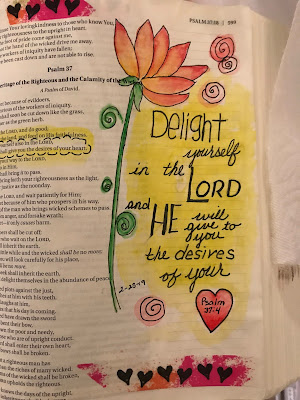 your lovingkindness to those who know You,
righteousness to the upright in heart.
foot of pride come against me,
the hand of the wicked drive me away.
workers of iniquity have fallen;
been cast down and are not able to rise.
Psalm 37
Heritage of the Righteous and the Calamity of the
A Psalm of David.
because of evildoers,
of the workers of iniquity.
shall soon be cut down like the grass,
as the green herb.
the LORD, and do good;
the land, and feed on His faithfulness.
yourself also in the LORD,
shall give you the desires of your heart.
your way to the LORD,
in Him,
shall bring it to pass.
bring forth your righteousness as the light,
justice as the noonday.
the LORD, and wait patiently for Him;
because of him who prospers in his way,
of the man who brings wicked schemes to pass.
from anger, and forsake wrath;
it only causes harm.
shall be cut off;
who wait on the LORD,
inherit the earth.
little while and the wicked shall be no more;
will look carefully for his place,
be no more.
meek shall inherit the earth,
delight themselves in the abundance of peace.
plots against the just,
at him with his teeth.
laughs at him,
that his day is coming.
have drawn the sword
bent their bow,
down the poor and needy,
who are of upright conduct.
shall enter their own heart,
bows shall be broken.
a righteous man has
the riches of many wicked.
of the wicked shall be broken,
upholds the righteous.
knows the days of the upright,
Delight
yourself
in the LORD
and HE will
give to
you
the desires
of your
2-23-19
Psalm
37:4